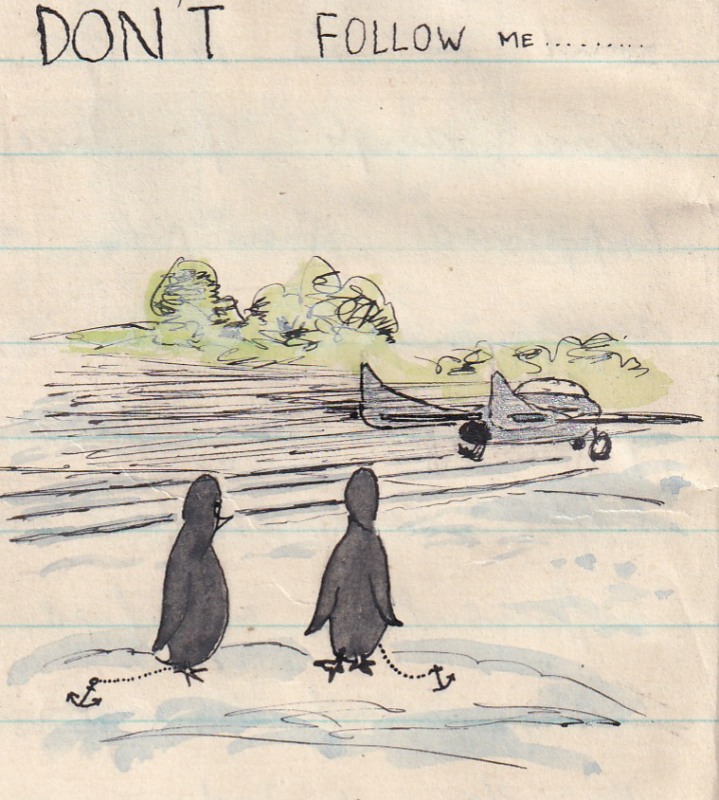 DON'T FOLLOW ME.........